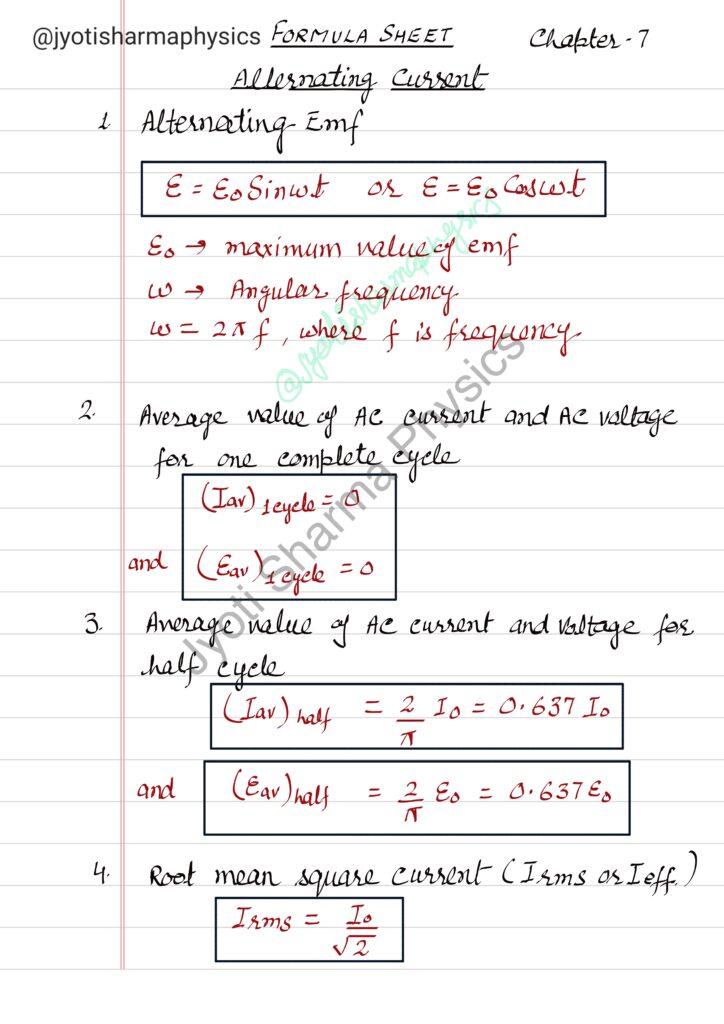 @jyotisharmaphysics FORMULA SHEET Chapter-7
Alternating Current
1 Alternating Emf
ε = ε₀ Sinωt or ε = ε₀ Cosωt
ε₀ → maximum value of emf
ω → Angular frequency
ω = 2π f , where f is frequency
@jyotisharmaphysics
Jyoti Sharma Physics
2. Average value of AC current and AC voltage
for one complete cycle
(Iav)₁cycle = 0
and (εav)₁cycle = 0
3. Average value of AC current and voltage for
half cycle
(Iav)half = 2/π I₀ = 0.637 I₀
and (εav)half = 2/π ε₀ = 0.637 ε₀
4. Root mean square current (Irms or Ieff.)
Irms = I₀/√2